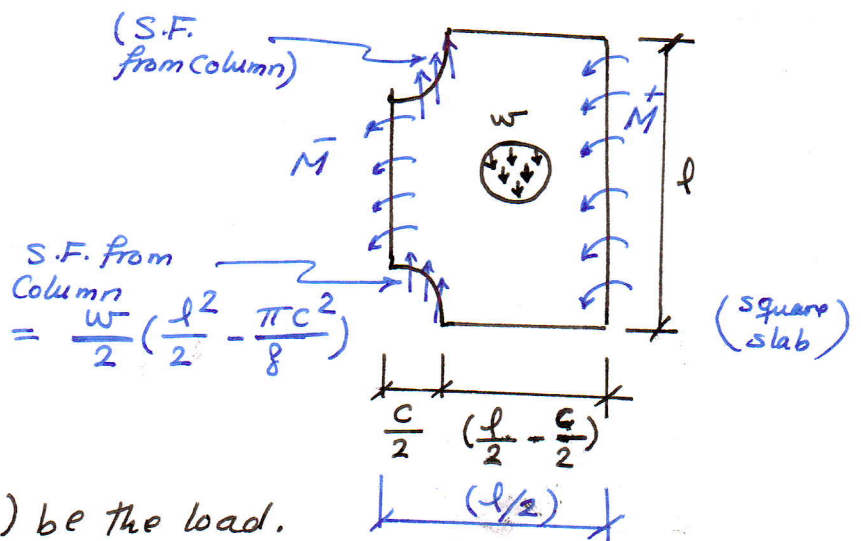 (S.F.
from Column)
w
M⁺
M⁻
l
S.F. from
Column
= w/2 (l²/2 - πc²/8)
(square
slab)
c/2 (l/2 - c/2)
(l/2)
) be the load.